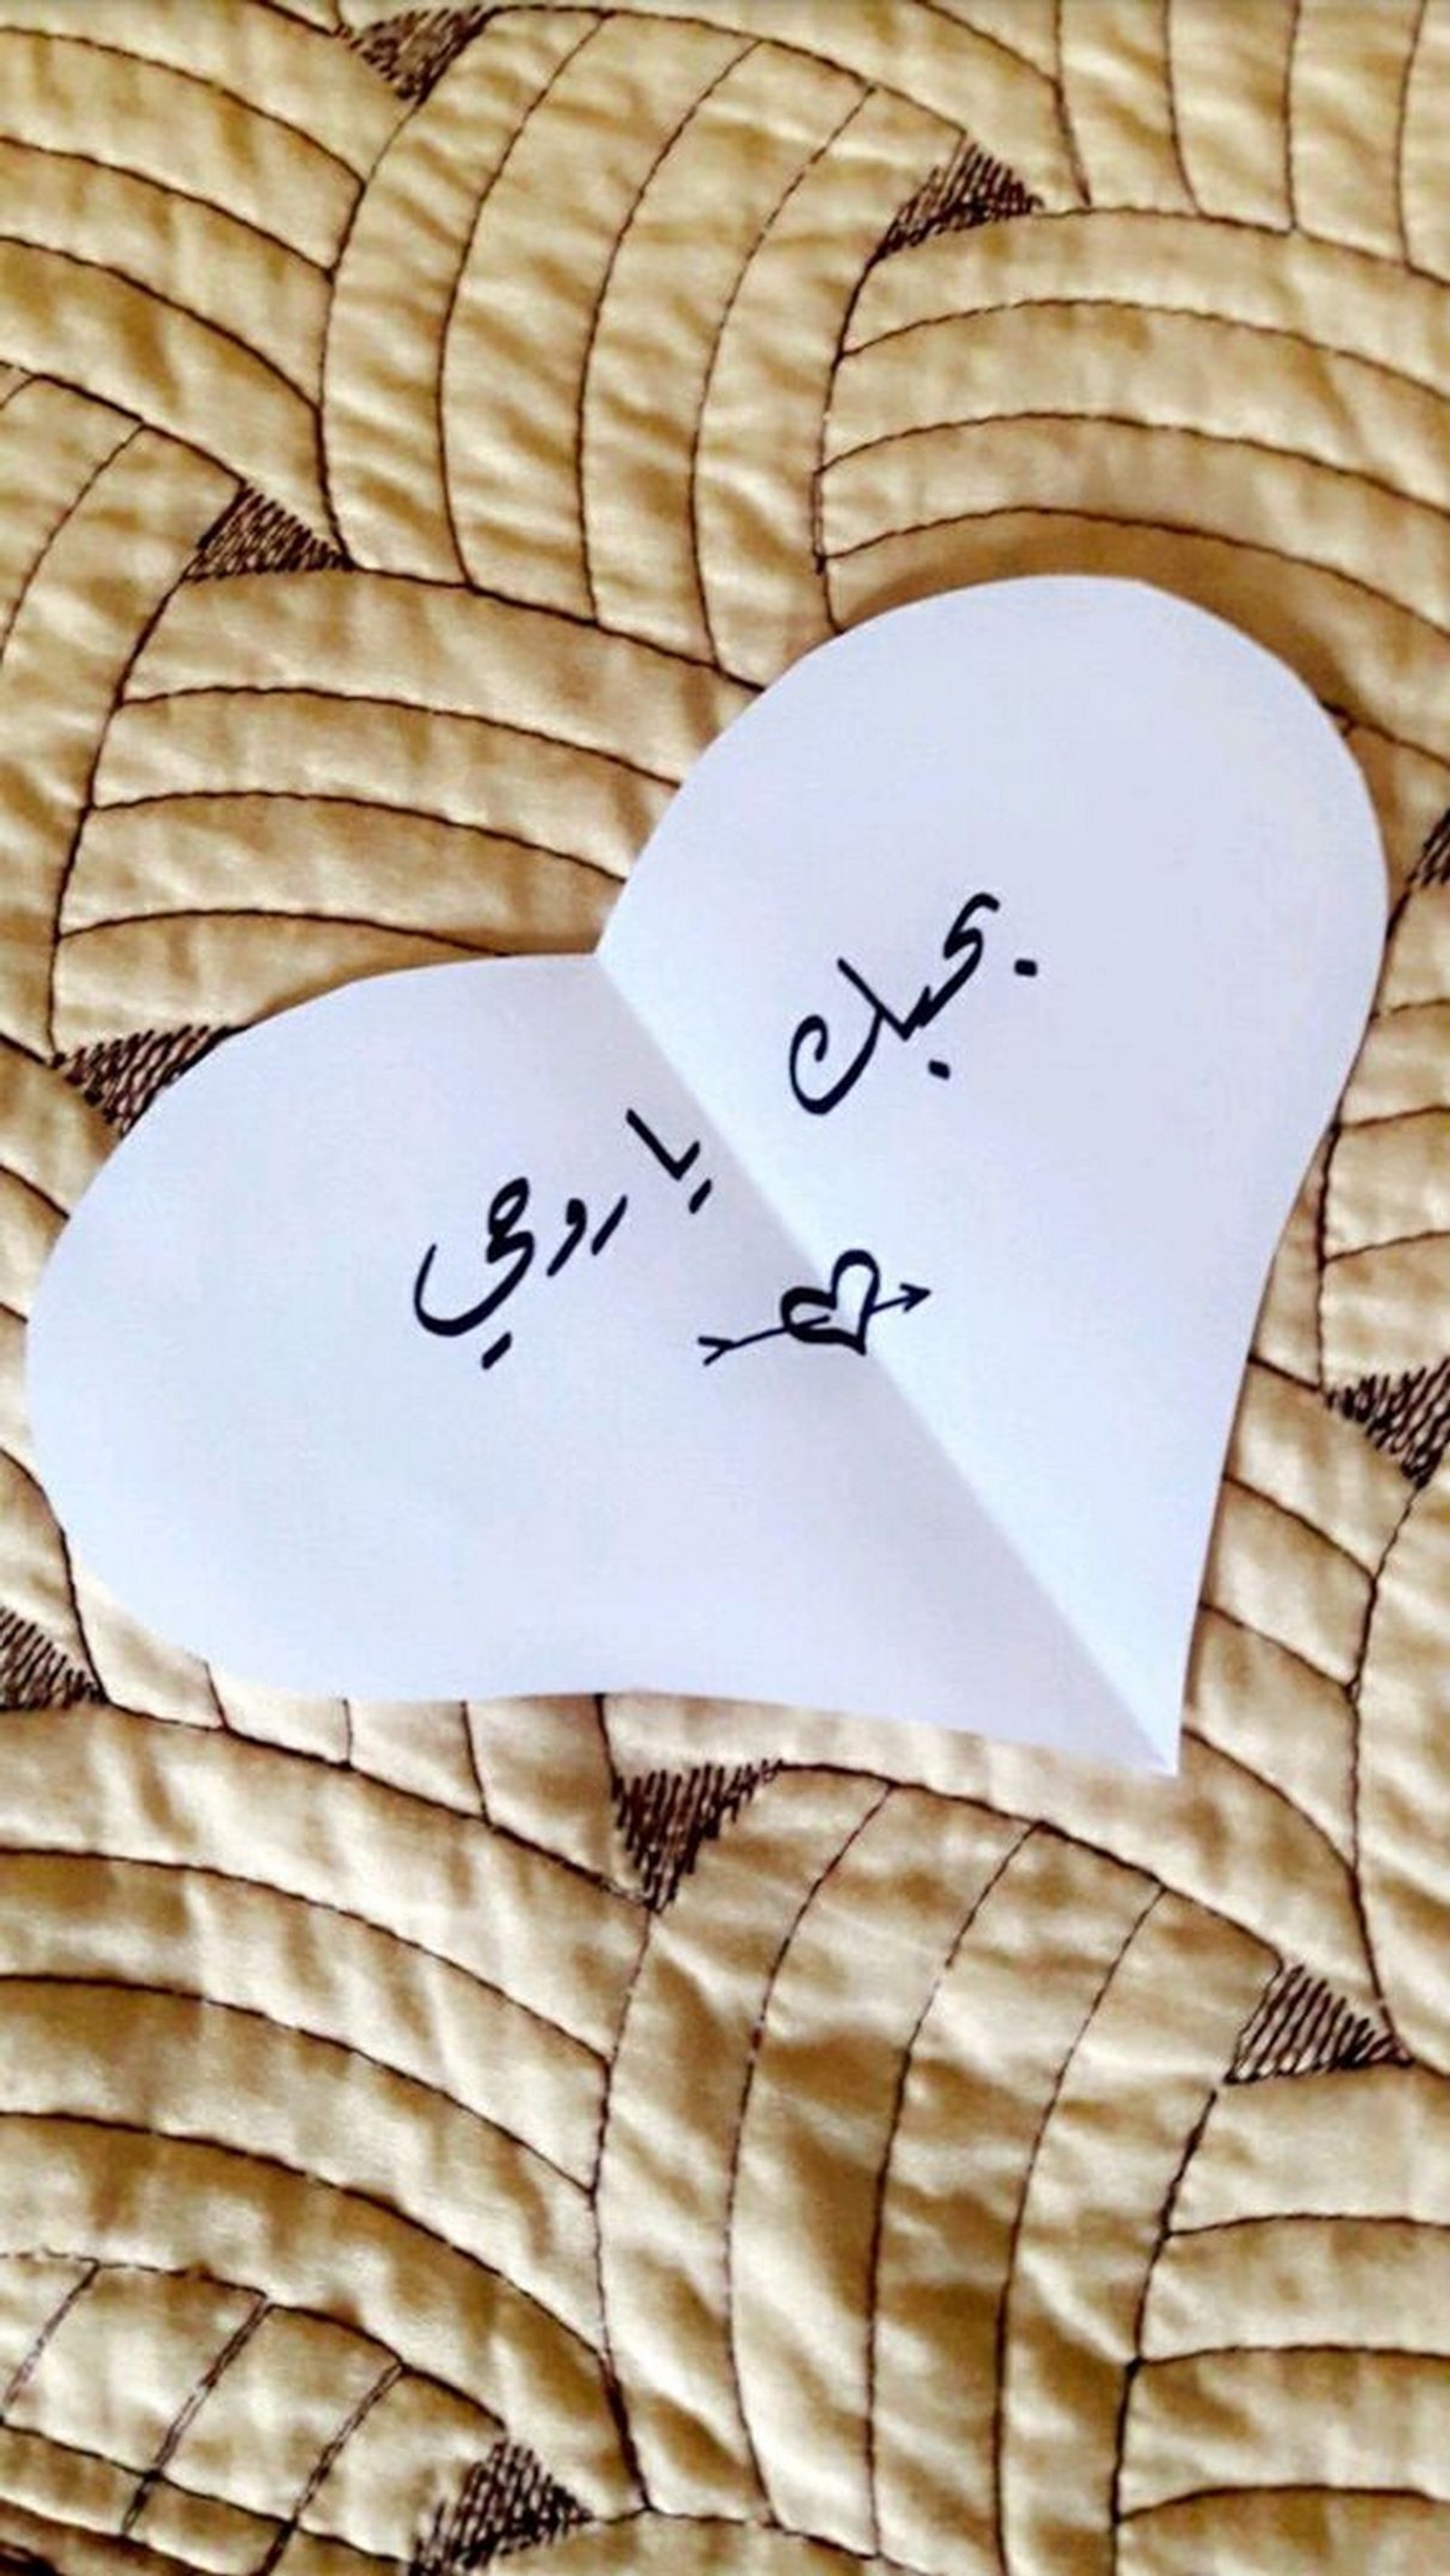 بحبك
يا روحي